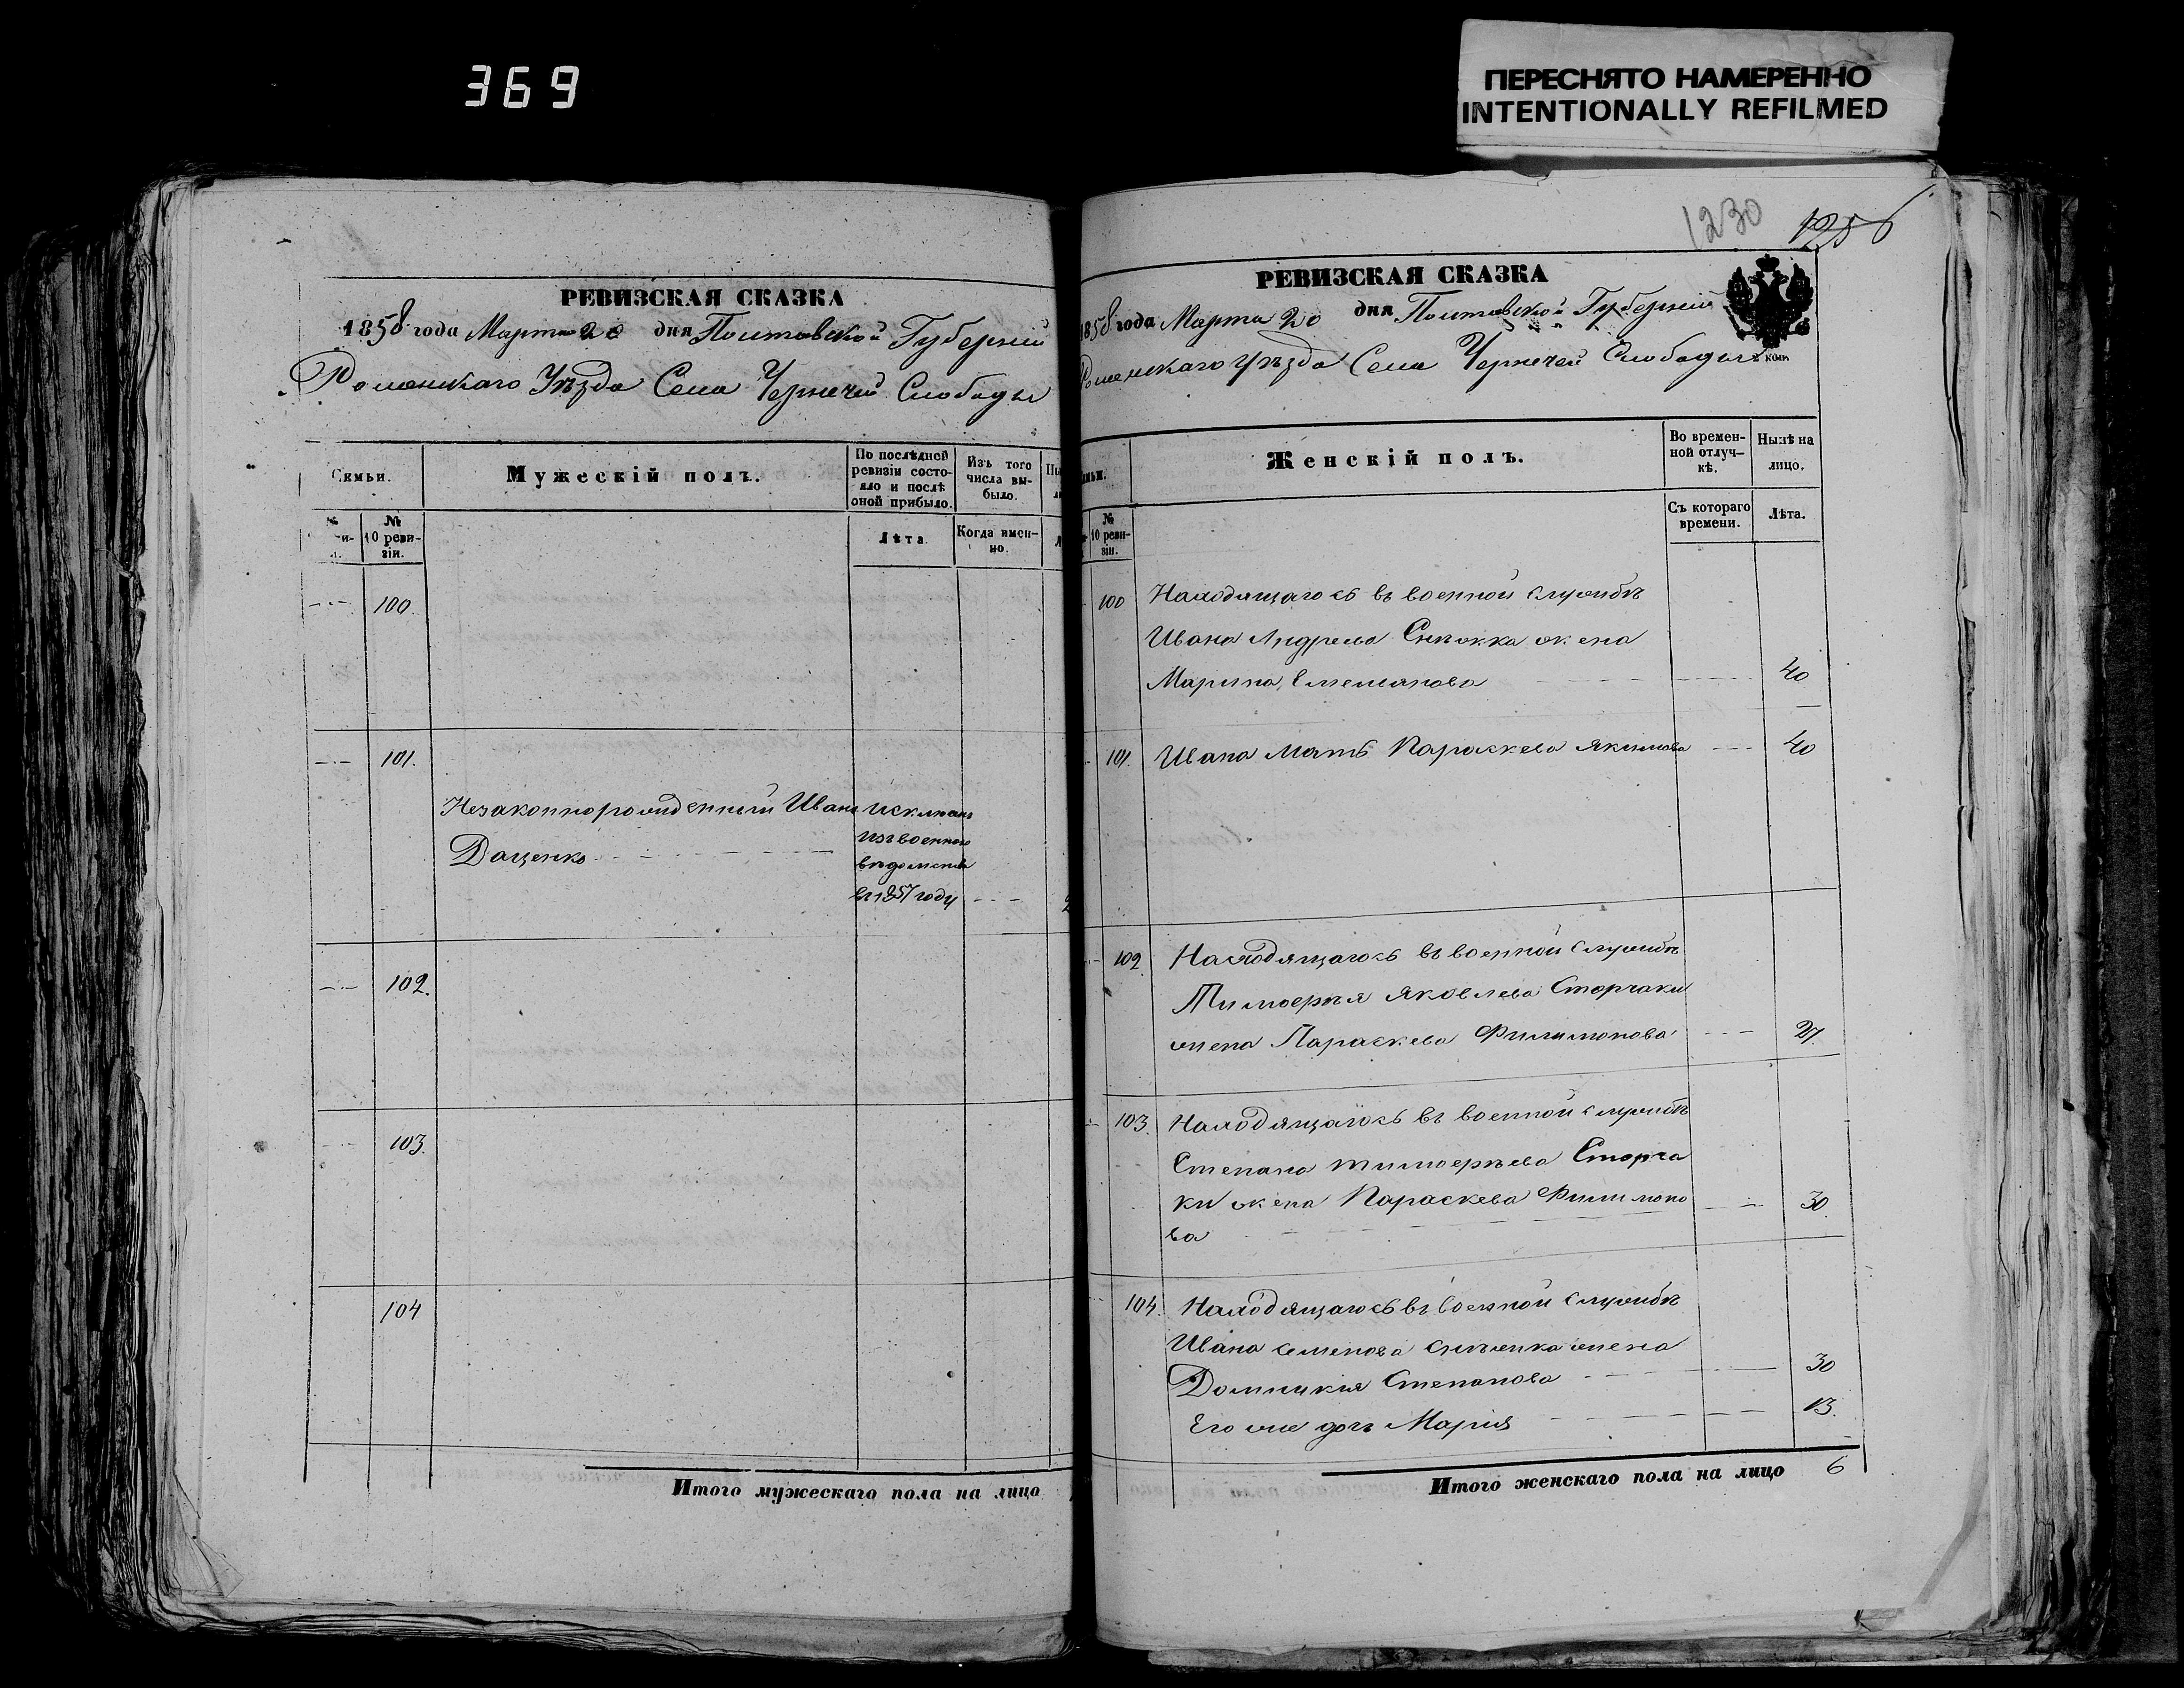 369
ПЕРЕСНЯТО НАМЕРЕННО
INTENTIONALLY REFILMED
РЕВИЗСКАЯ СКАЗКА
1858 года Марта 20 дня Полтавской Губерніи
Роменскаго Уѣзда Села Чернечей Слободы
Семьи.
Мужескій полъ.
По послѣдней
ревизіи состо-
яло и послѣ
оной прибыло.
Изъ того
числа вы-
было.
№
10 реви-
зіи.
Лѣта
Когда имен-
но.
100.
101.
Незаконнорожденный Иванъ
Даценко
изъ военнаго
вѣдомства
въ 1857 году
102.
103.
104
Итого мужескаго пола на лицо
1230
1256
РЕВИЗСКАЯ СКАЗКА
1858 года Марта 20 дня Полтавской Губерніи
Роменскаго Уѣзда Села Чернечей Слободы
Женскій полъ.
Во времен-
ной отлуч-
кѣ.
Нынѣ на
лицо.
№
10 реви-
зіи.
Съ котораго
времени.
Лѣта.
100 Находящагось въ военной службѣ
Ивана Андреева Снѣжка жена
Марина Емельянова 40
101. Ивана Мать Параскева Якимова 40
102. Находящагось въ военной службѣ
Тимоѳѣя Яковлева Сторчаки
жена Параскева Филимонова 27.
103. Находящагось въ военной службѣ
Степана Тимоѳѣева Сторча
ки жена Параскева Филимоно
ва 30.
104. Находящагось въ военной службѣ
Ивана Семенова Снѣжка жена
Домникія Степанова 30
Его же дочь Марія 13.
Итого женскаго пола на лицо 6